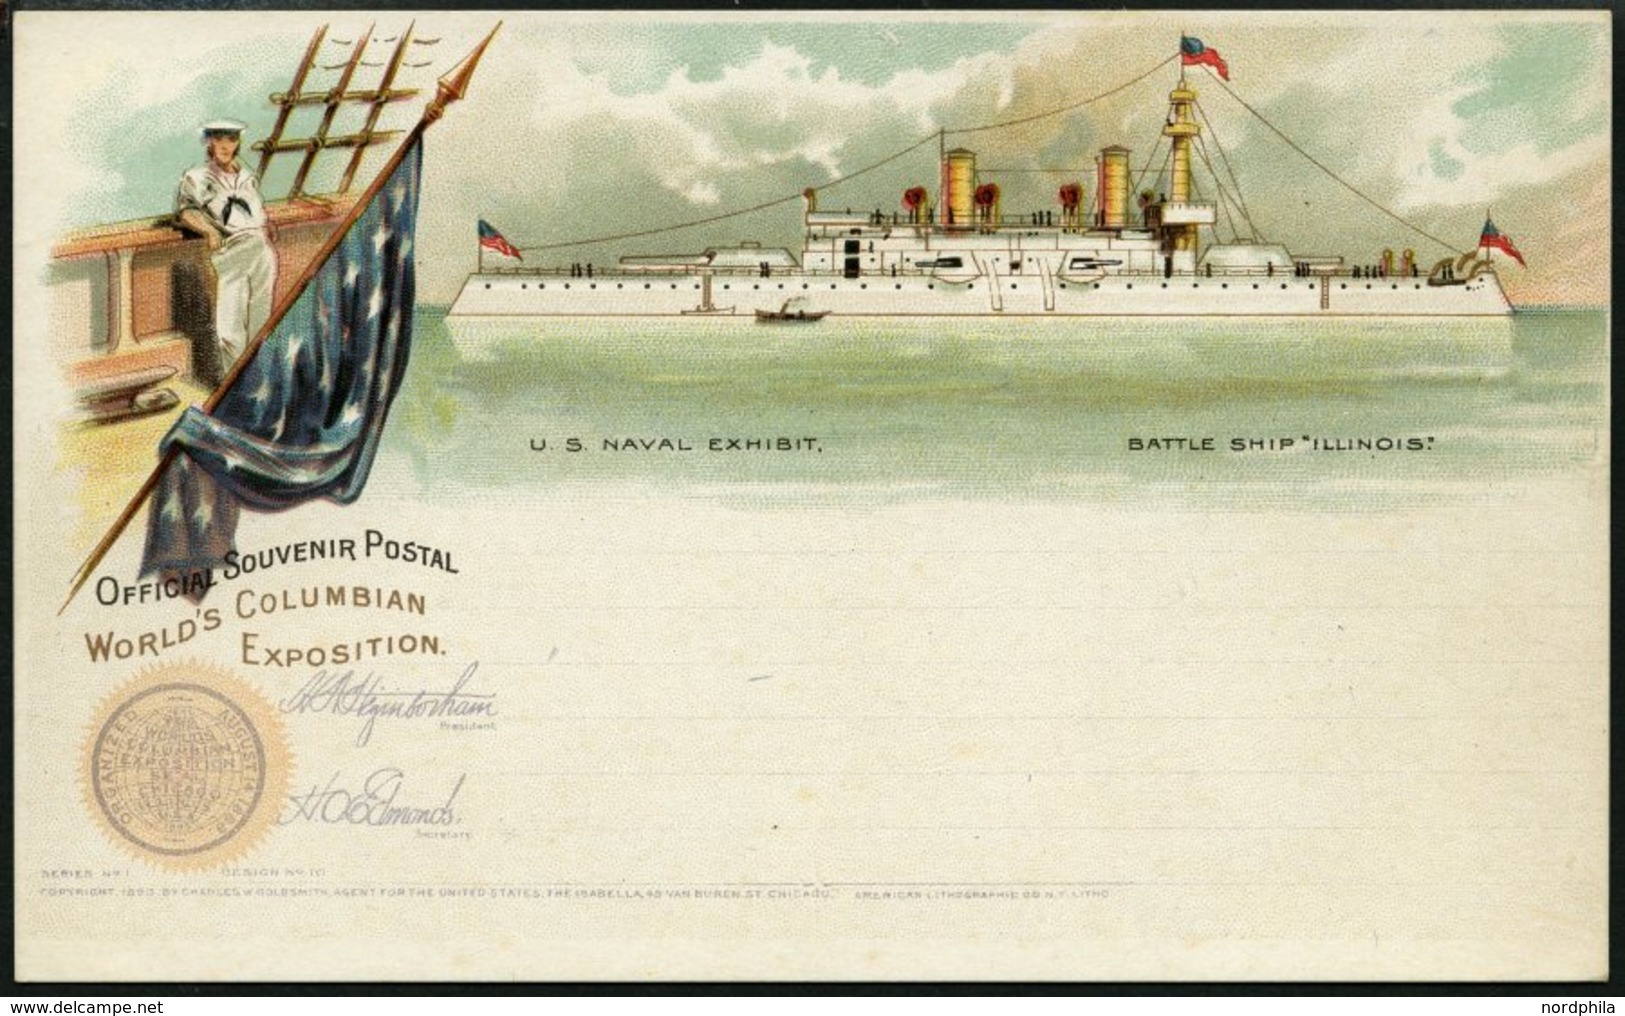 U. S. NAVAL EXHIBIT,
BATTLE SHIP "ILLINOIS."
OFFICIAL SOUVENIR POSTAL
WORLD'S COLUMBIAN
EXPOSITION.
H. N. Higinbotham
President.
ORGANIZED AUGUST 14 1890
WORLD'S
COLUMBIAN
EXPOSITION
SEAL
CHICAGO
H. O. Edmonds.
Secretary.
SERIES No 1. DESIGN No 10
COPYRIGHT, 1893, BY CHARLES W. GOLDSMITH, AGENT FOR THE UNITED STATES, THE ISABELLA, 48 VAN BUREN ST. CHICAGO. AMERICAN LITHOGRAPHIC CO. N.Y. LITHO
www.delcampe.net
nordphila